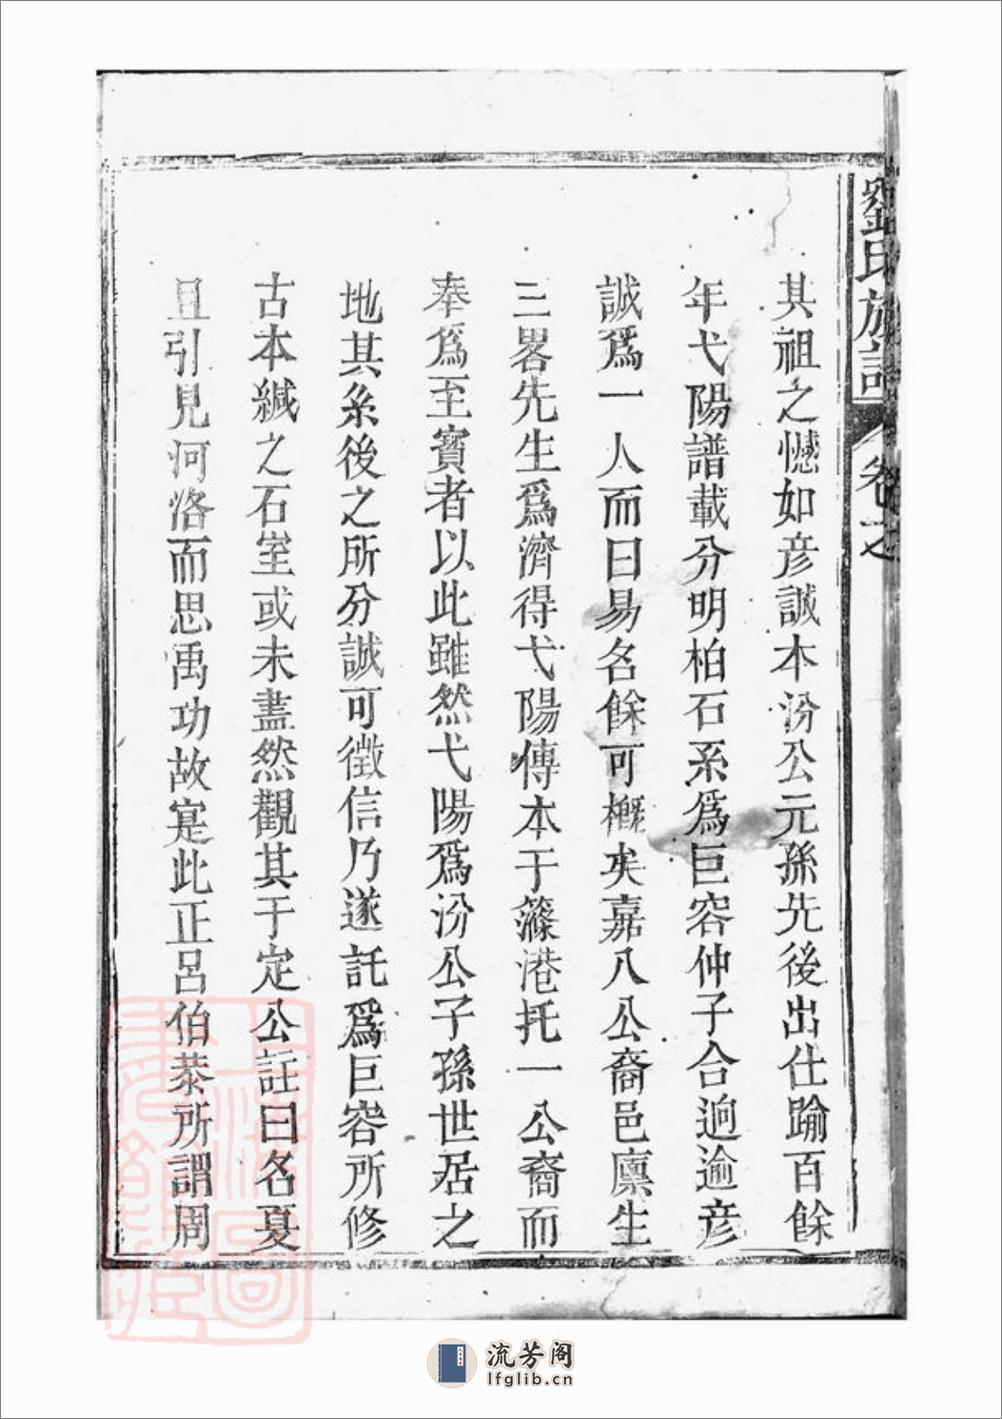 劉氏族譜 卷之
其祖之憾如彦誠本汾公元孫先後出仕踰百餘
年弋陽譜載分明柏石系爲巨容仲子合逈逾彦
誠爲一人而曰易名餘可槪矣嘉八公裔邑廪生
三畧先生爲濟得弋陽傳本于篠港托一公裔而
奉爲至寳者以此雖然弋陽爲汾公子孫世居之
地其系後之所分誠可徵信乃遂託爲巨容所修
古本緘之石室或未盡然觀其于定公註曰名夏
且引見河洛而思禹功故寔此正呂伯恭所謂周
上海圖書館藏
流芳阁
lfglib.cn